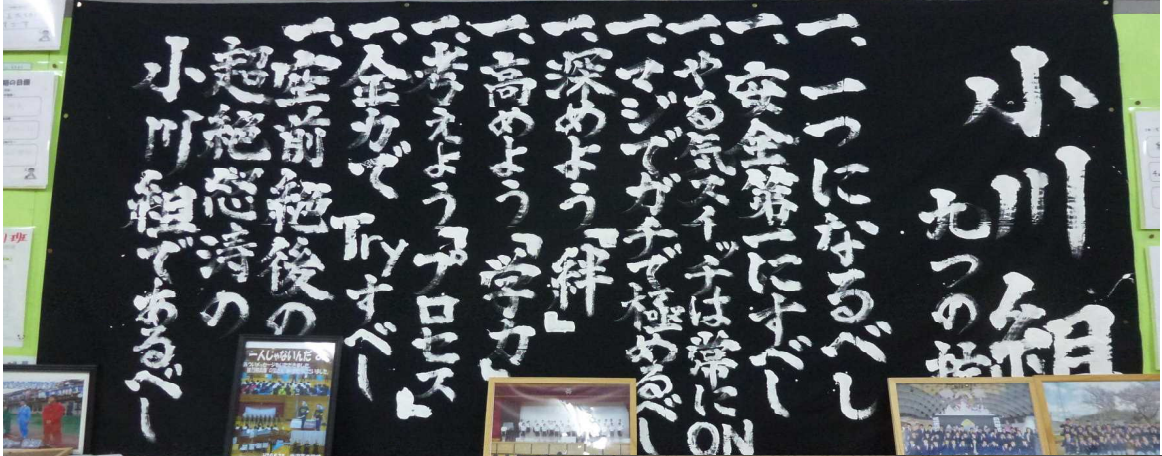 小川組
九つの
一、一つになるべし
一、安全第一にすべし
一、やる気スイッチは常にON
一、マジでガチで極めるべし
一、深めよう「絆」
一、高めよう「学力」
一、考えよう「プロセス」
一、全力でTryすべし
一、空前絶後の
超絶怒涛の
小川組であるべし
一人じゃないんだ